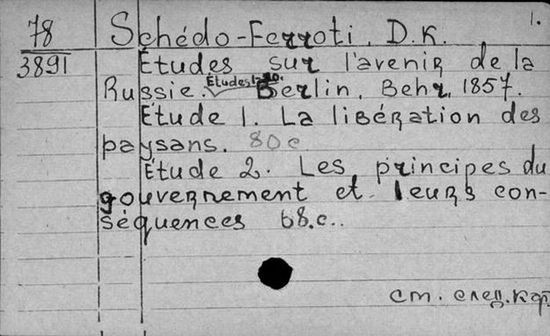 1.
78
3891
Schédo-Ferroti, D.K.
Études sur l'avenir de la
Russie. Berlin, Behr, 1857.
Étude 1. La libération des
paysans. 80 c
Étude 2. Les principes du
gouvernement et leurs con-
séquences 68.c..
см. след. кар.